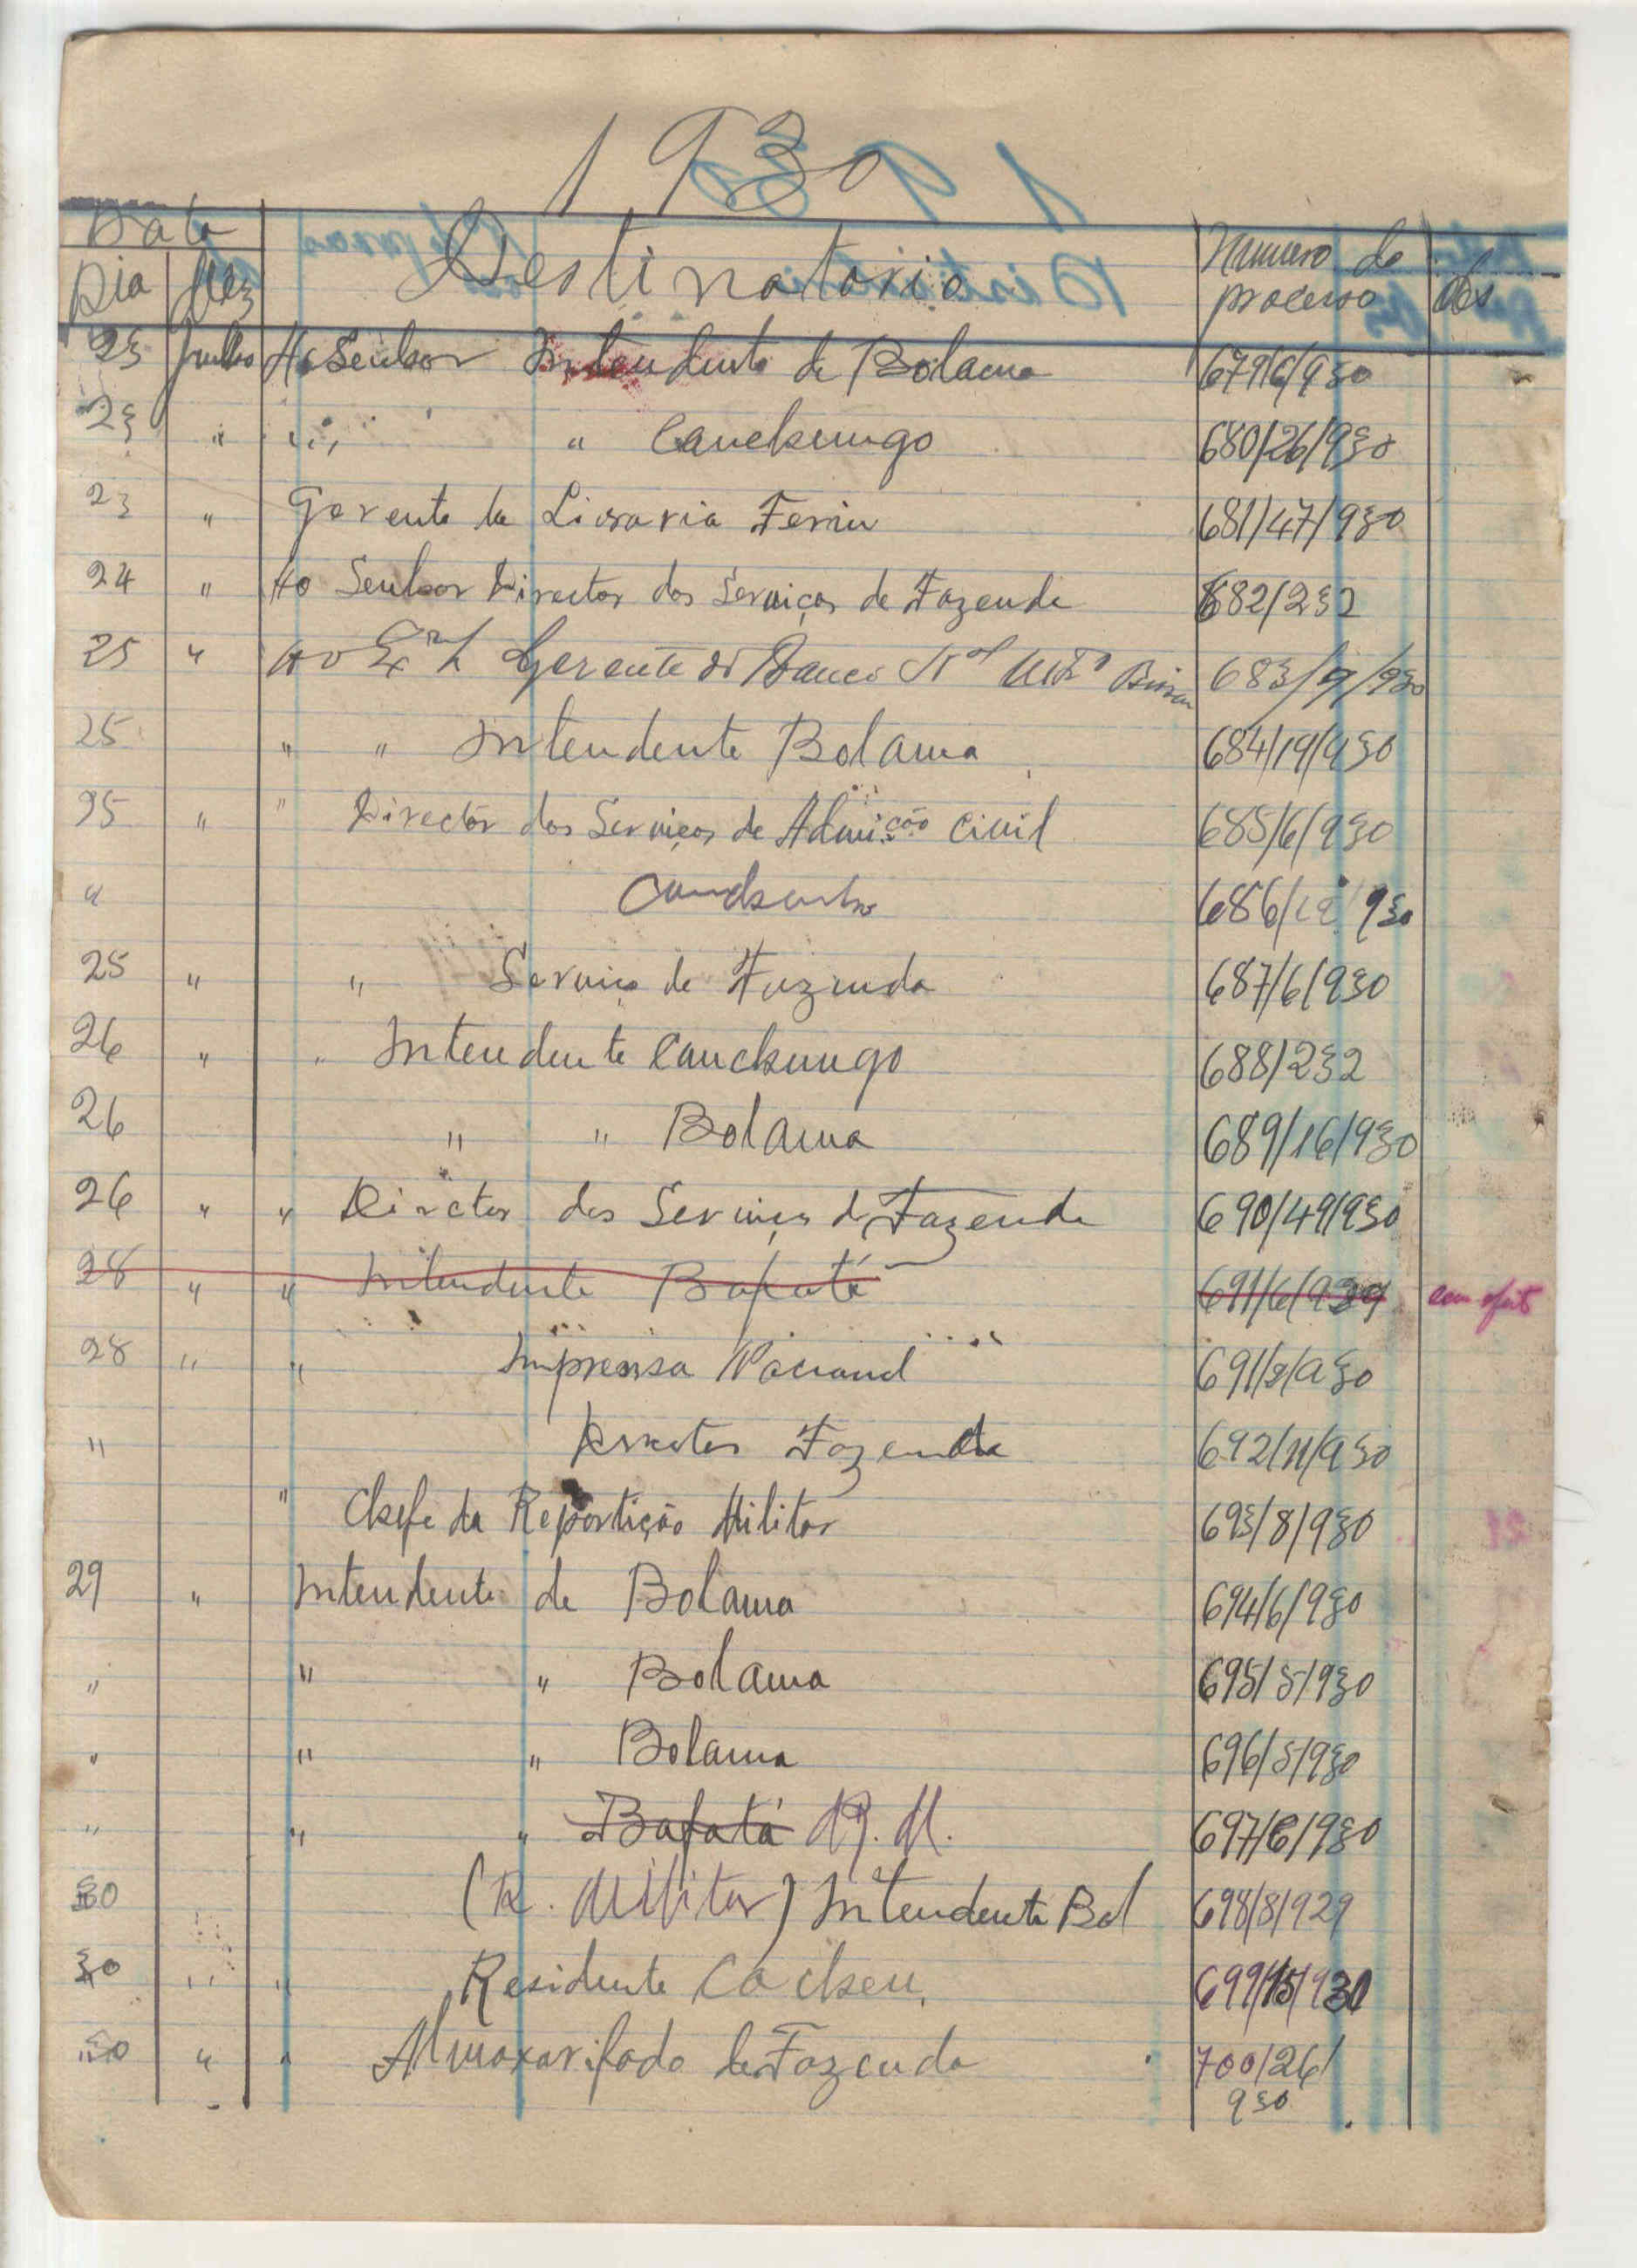 1930
Data
Destinatario
Numero do
processo
Obs
Dia Mez
23 Julho Ao Senhor Intendente de Bolama 679/6/930
23 " " " Canchungo 680/26/930
23 " Gerente da Livraria Ferin 681/47/930
24 " Ao Senhor Director dos Serviços de Fazenda 682/232
25 " Ao Gerente do Banco Nal 683/9/930
25 " " Intendente Bolama 684/19/930
25 " " Director dos Serviços de Admição Civil 685/6/930
" 686/ 930
25 " " Serviço de Fazenda 687/6/930
26 " " Intendente Canchungo 688/232
26 " " Bolama 689/16/930
26 " " Dirctor dos Serviços de Fazenda 690/49/930
28 " " Intendente Bafatá 691/6/930
28 " " Imprensa Nacional 691/3/930
" Director Fazenda 692/11/930
" Chefe da Repartição Militar 693/8/930
29 " Intendente de Bolama 694/6/930
" " " Bolama 695/5/930
" " " Bolama 696/5/930
" " " Bafatá R. M. 697/6/930
30 (R. Militar) Intendente Bol 698/8/929
30 " " Residente Cacheu 699/15/930
30 " " Almoxarifado de Fazenda 700/26/
930